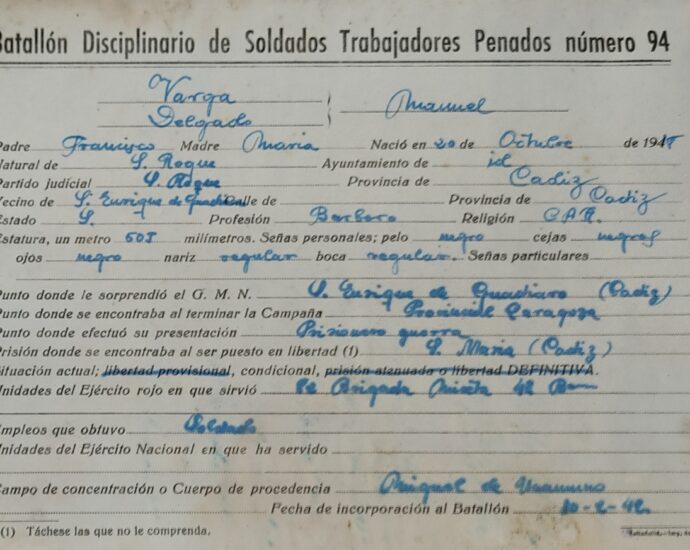 Batallón Disciplinario de Soldados Trabajadores Penados número 94
Varga
Delgado } Manuel
Padre Francisco Madre Maria Nació en 20 de Octubre de 191
Natural de S. Roque Ayuntamiento de id
Partido judicial S. Roque Provincia de Cadiz
Vecino de S. Enrique de Guadiaro Calle de Provincia de Cadiz
Estado S. Profesión Barbero Religión C.A.R.
Estatura, un metro 505 milímetros. Señas personales; pelo negro cejas negras
ojos negro nariz regular boca regular. Señas particulares
Punto donde le sorprendió el G. M. N. S. Enrique de Guadiaro (Cadiz)
Punto donde se encontraba al terminar la Campaña Provincia Zaragoza
Punto donde efectuó su presentación Prisionero guerra
Prisión donde se encontraba al ser puesto en libertad (1) S. Maria (Cadiz)
Situación actual; libertad provisional, condicional, prisión atenuada o libertad DEFINITIVA.
Unidades del Ejército rojo en que sirvió Brigada Mixta
Empleos que obtuvo Soldado
Unidades del Ejército Nacional en que ha servido
Campo de concentración o Cuerpo de procedencia Miguel de Unamuno
Fecha de incorporación al Batallón 10-2-42
(1) Táchese las que no le comprenda.